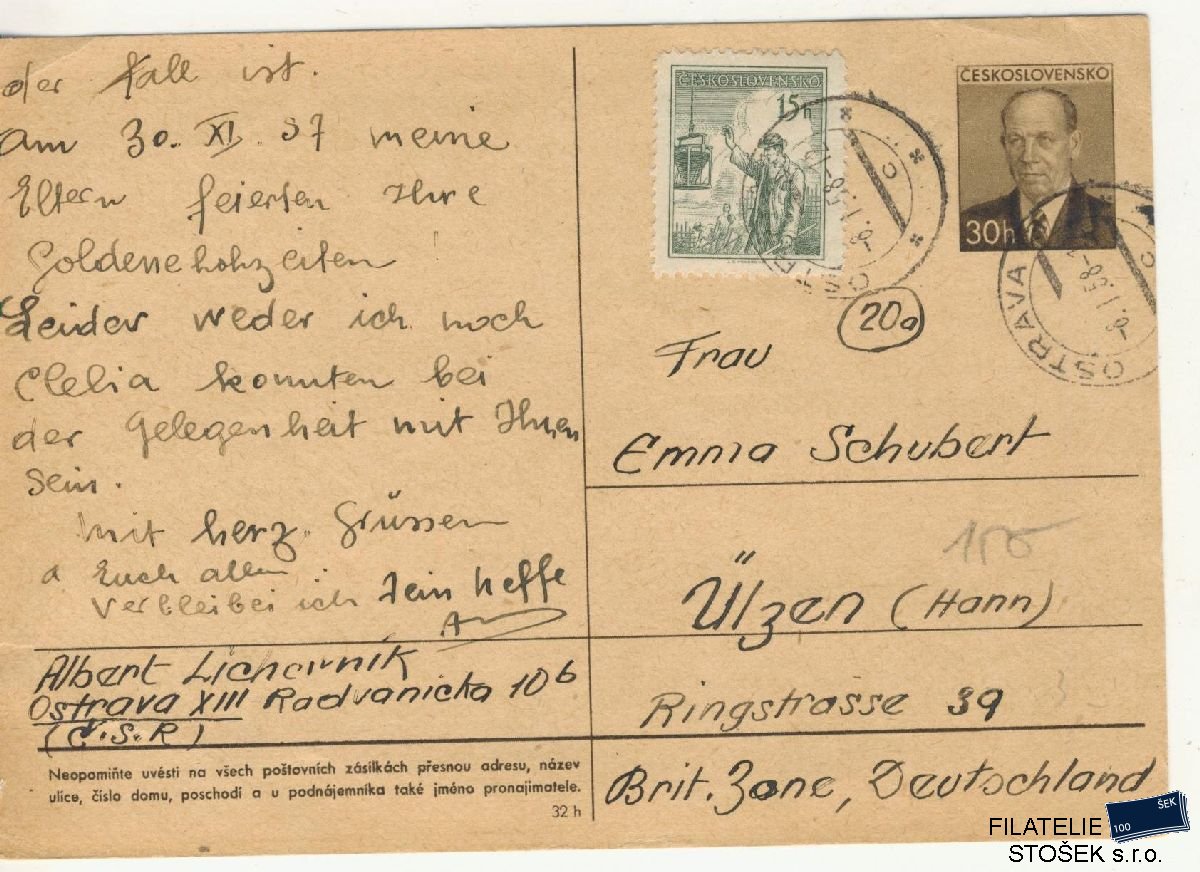 der Fall ist.
Am 30. XI. 57 meine
Eltern feierten Ihre
Goldene hohzeiten
Leider weder ich noch
Clelia konnten bei
der Gelegenheit mit Ihnen
sein.
Mit herz. Grüssen
a Euch allen
verbleibei ich Dein Neffe
Albert Licharnik
Ostrava XIII Radvanicka 10b
(Č.S.R)
Neopomiňte uvésti na všech poštovních zásilkách přesnou adresu, název
ulice, číslo domu, poschodí a u podnájemníka také jméno pronajimatele.
32 h
ČESKOSLOVENSKO
15h
ČESKOSLOVENSKO
30h
OSTRAVA
-9.1.58-1
20a
Frau
Emma Schubert
Ülzen (Hann)
Ringstrasse 39
Brit. Zone, Deutschland
FILATELIE
STOŠEK s.r.o.
100
ŠEK